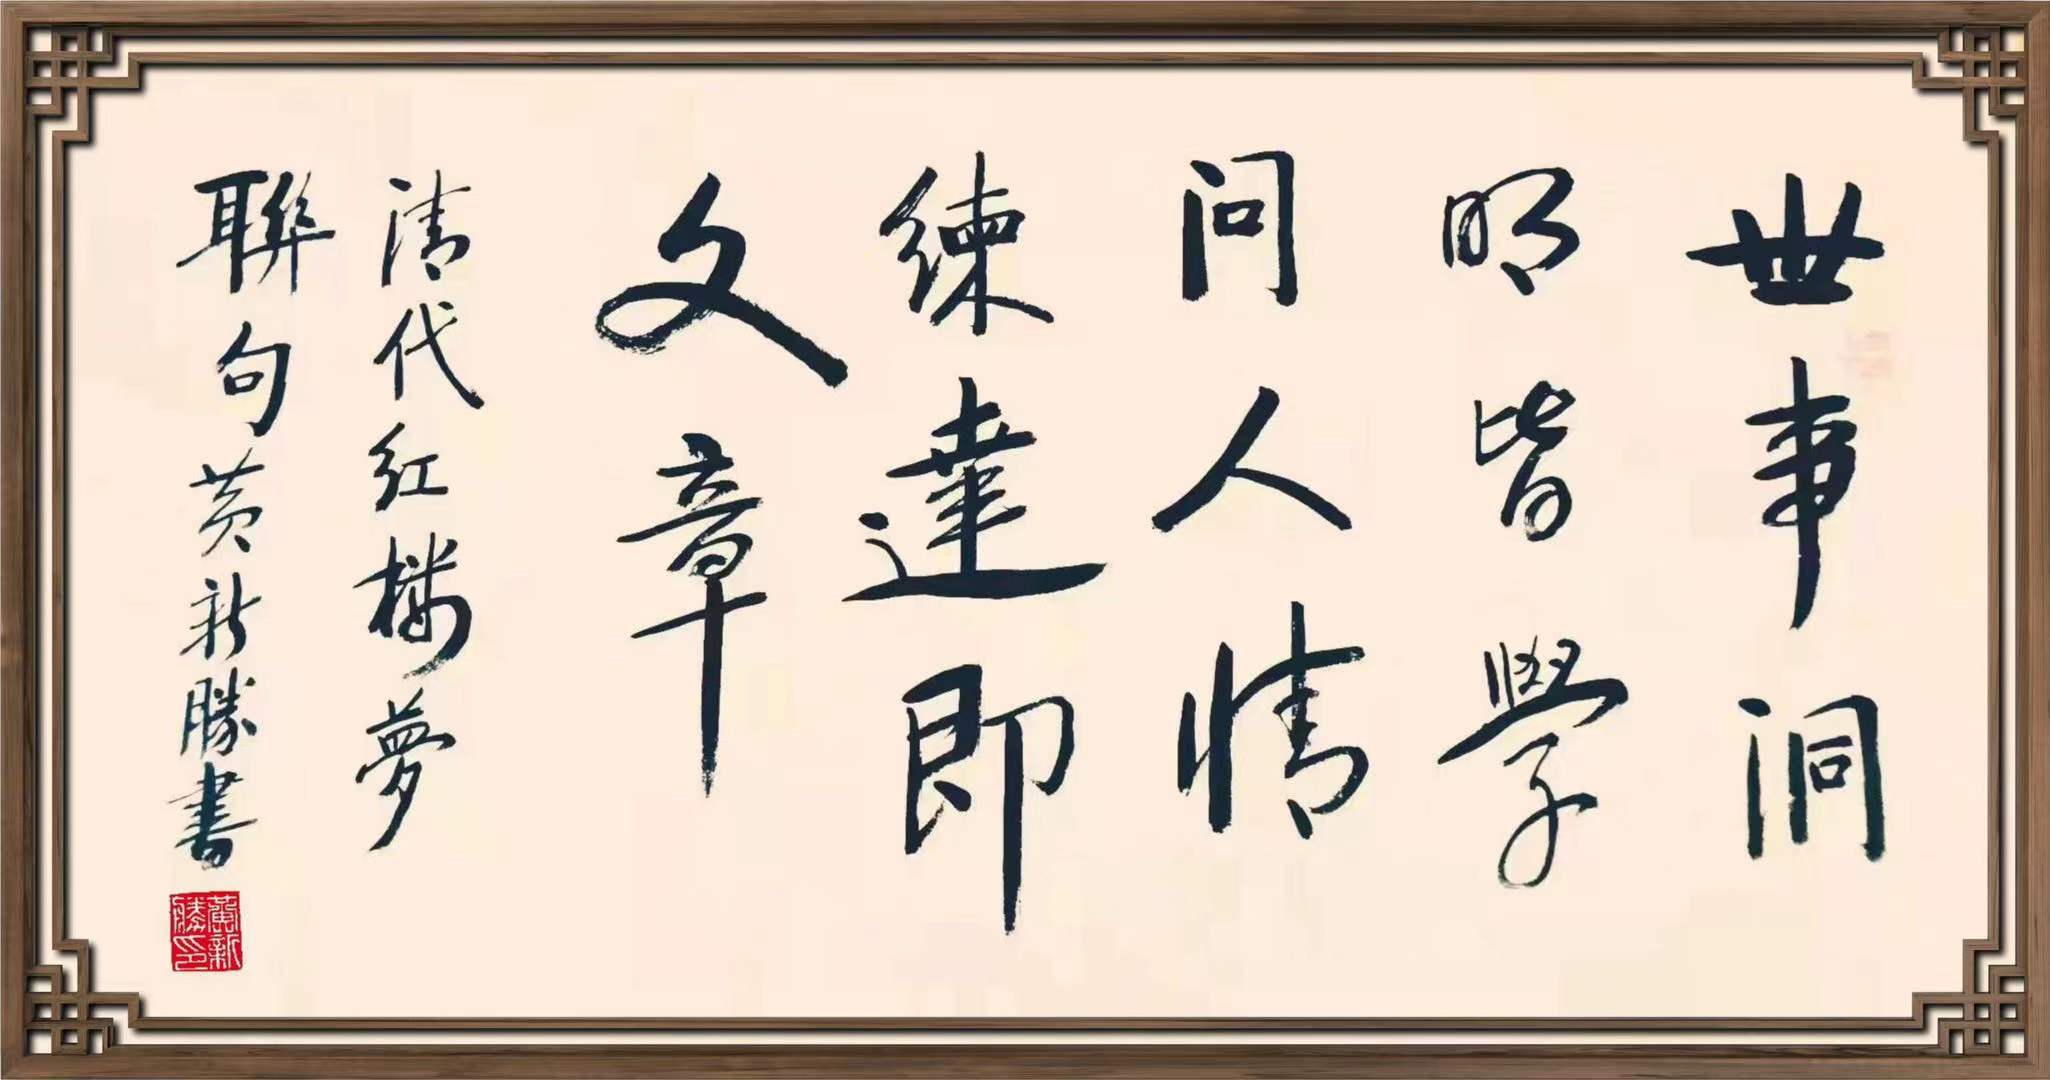 世事洞
明皆學
问人情
練達即
文章
清代红楼夢
聯句黄新勝書
黃新
勝印